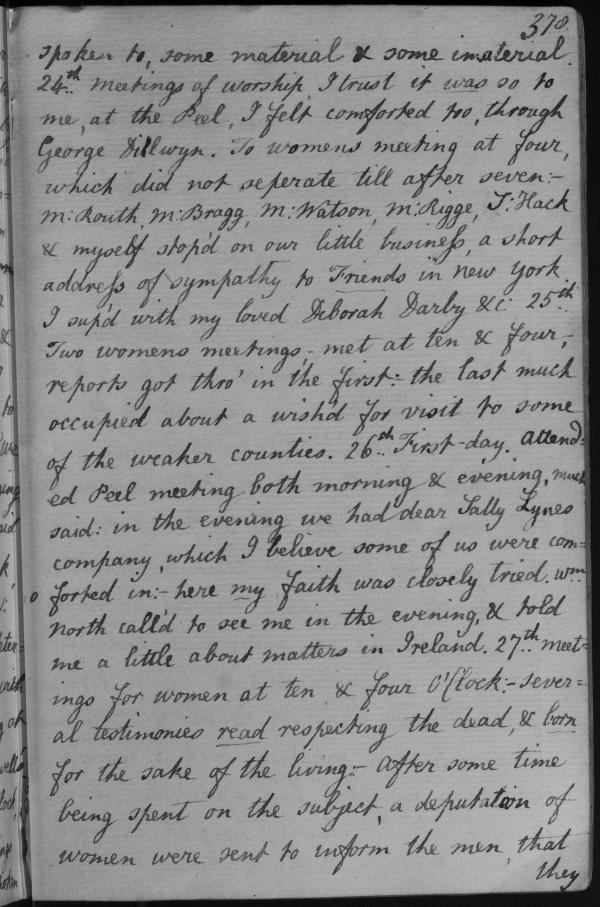 378.
spoken to, some material & some imaterial.
24th.. meetings of worship, I trust it was so to
me, at the Peel, I felt comforted too, through
George Dillwyn. To womens meeting at four,
which did not seperate till after seven:-
M: Routh, M: Bragg, M: Watson, M: Rigge, T: Hack
& myself stop'd on our little business, a short
address of sympathy to Friends in New York.
I sup'd with my loved Deborah Darby &c: 25th..
Two womens meetings,- met at ten & four,-
reports got thro' in the first:- the last much
occupied about a wish'd for visit to some
of the weaker counties. 26th.. First-day. Attend=
ed Peel meeting both morning & evening, much
said: in the evening we had dear Sally Lynes
company, which I believe some of us were com=
forted in:- here my faith was closely tried. Wm
North call'd to see me in the evening, & told
me a little about matters in Ireland. 27th.. meet=
ings for women at ten & four O'Clock:- sever=
al testimonies read respecting the dead, & born
for the sake of the living:- After some time
being spent on the subject, a deputation of
women were sent to inform the men, that
they